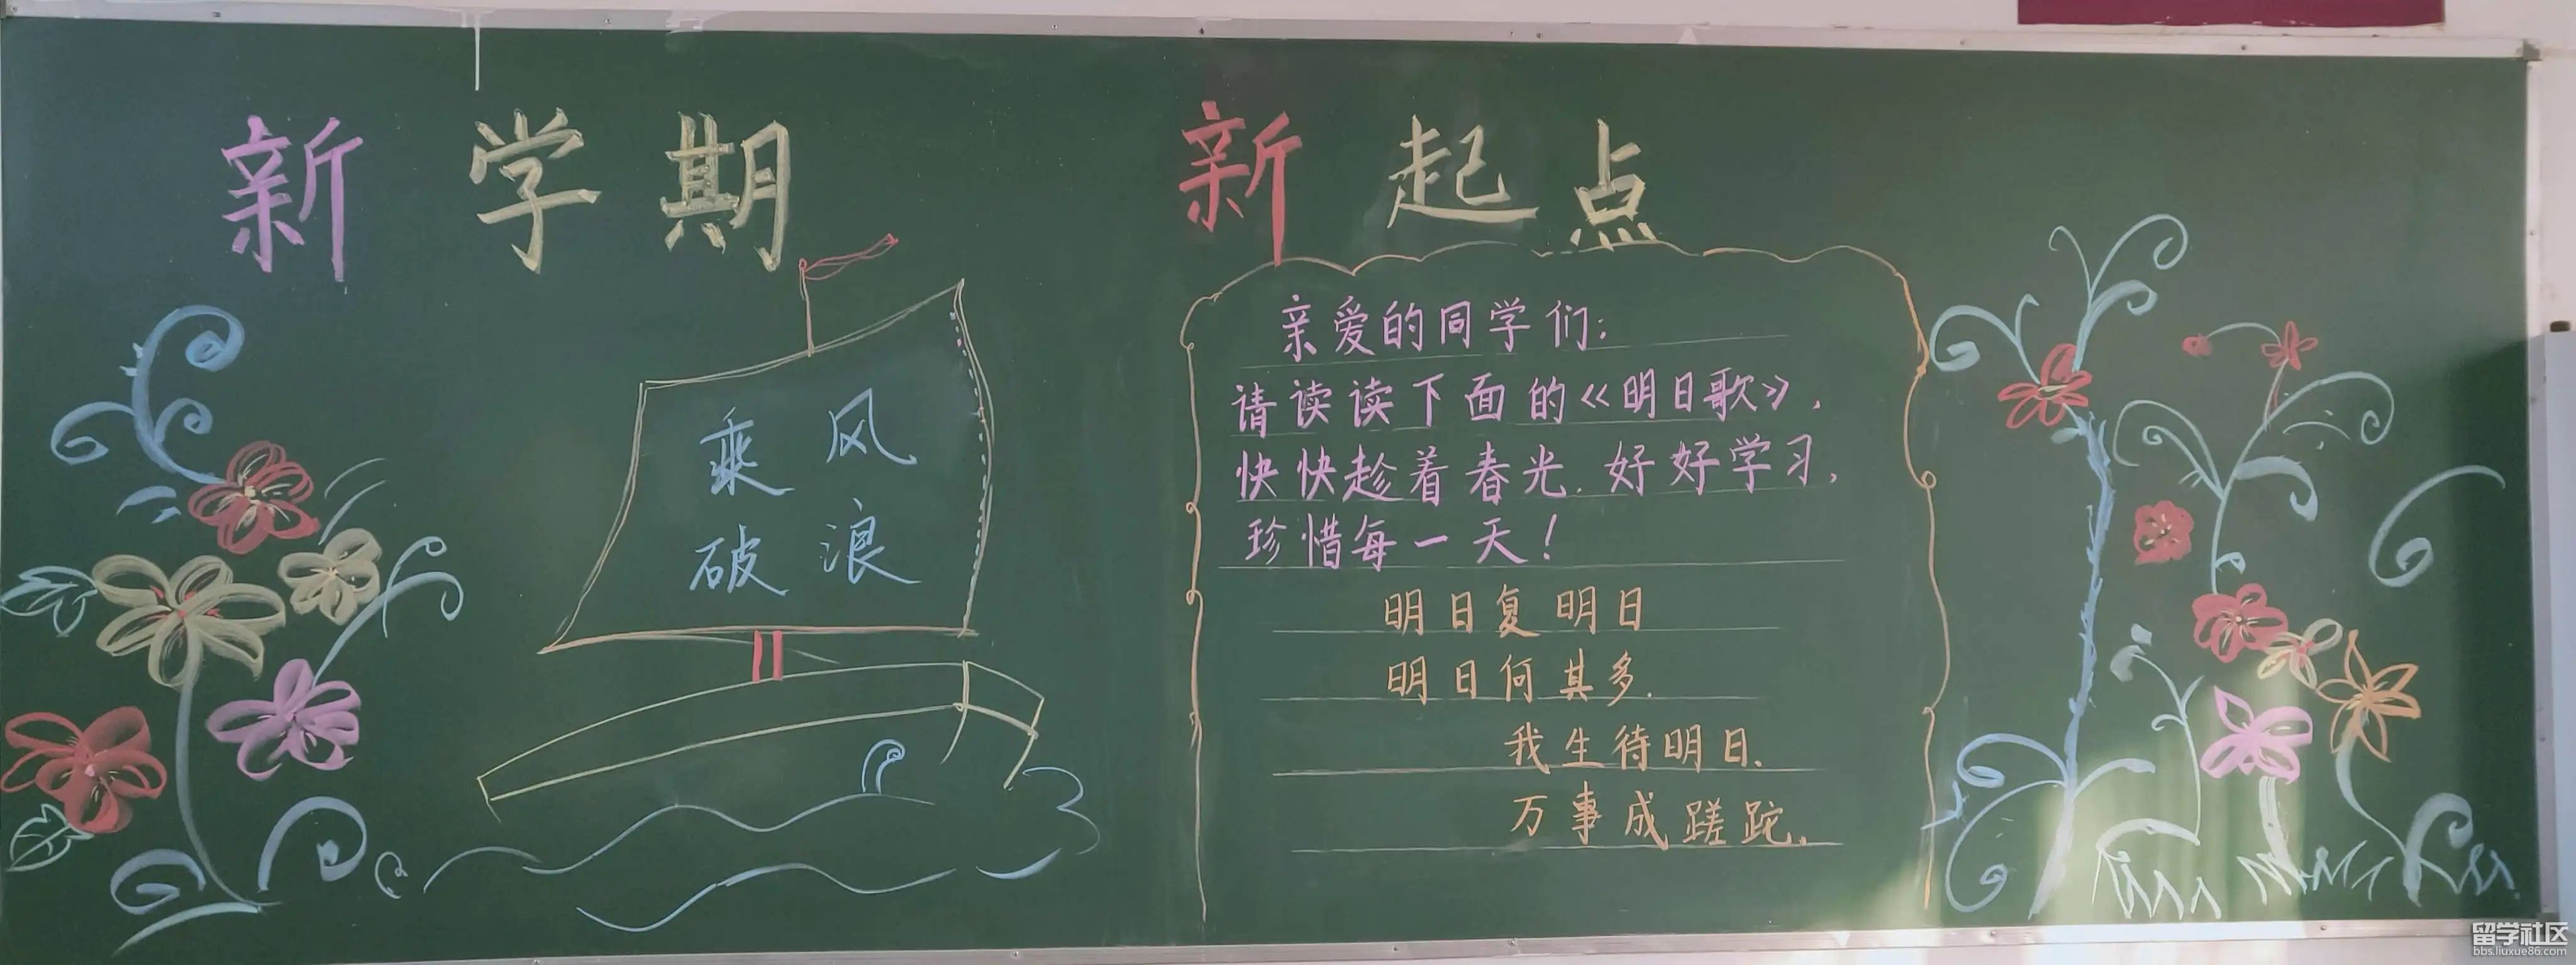 新学期
新起点
乘风
破浪
亲爱的同学们:
请读读下面的《明日歌》,
快快趁着春光,好好学习,
珍惜每一天!
明日复明日
明日何其多.
我生待明日.
万事成蹉跎.
留学社区
bbs.liuxue86.com